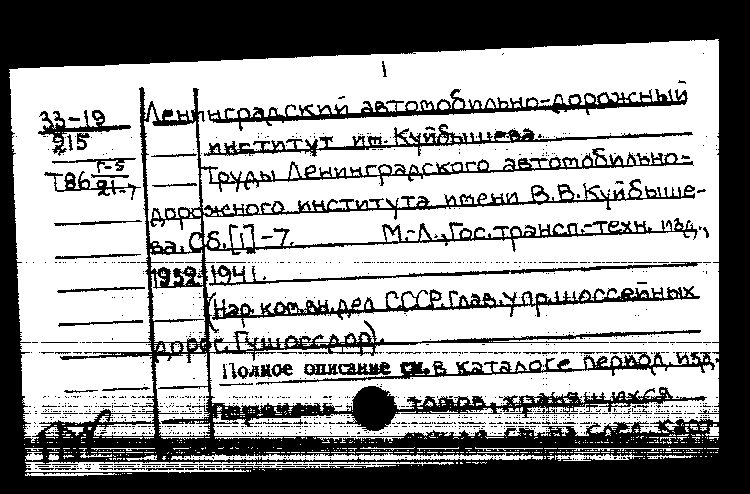 1
33-19
215
Т86 Г-5
21-7
Ленинградский автомобильно-дорожный
институт им. Куйбышева.
Труды Ленинградского автомобильно-
дорожного института имени В.В.Куйбыше-
ва. Сб.[1]-7. М.-Л., Гос.трансп.-техн. изд.,
1932-1941.
(Нар.ком.вн.дел СССР. Глав.упр.шоссейных
дорог. Гушоссдор).
Полное описание см. в каталоге период. изд.
Перечень томов, хранящихся
см. на след. карт